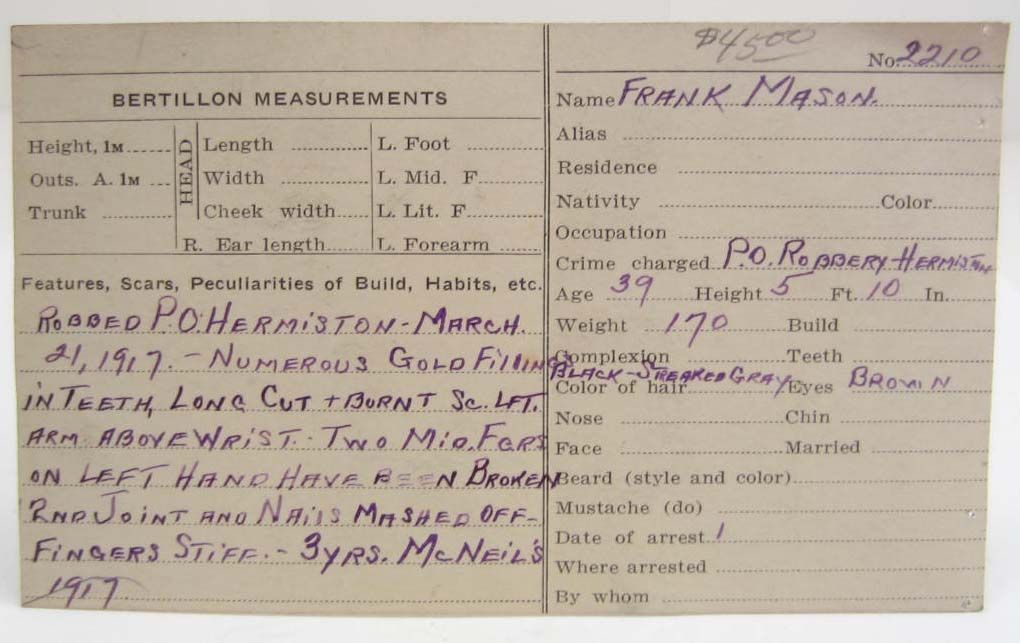 BERTILLON MEASUREMENTS
Height, 1M
Outs. A. 1M
Trunk
HEAD
Length
Width
Cheek width
R. Ear length
L. Foot
L. Mid. F.
L. Lit. F.
L. Forearm
Features, Scars, Peculiarities of Build, Habits, etc.
ROBBED P.O. HERMISTON - MARCH.
21, 1917. - NUMEROUS GOLD FILLINGS
IN TEETH, LONG CUT + BURNT SC. LFT.
ARM ABOVE WRIST. - TWO MID. FGRS
ON LEFT HAND HAVE BEEN BROKEN
2ND JOINT AND NAILS MASHED OFF-
FINGERS STIFF. - 3 YRS. McNEIL'S
1917
$45.00
No. 2210
Name FRANK MASON.
Alias
Residence
Nativity Color
Occupation
Crime charged P.O. ROBBERY-HERMISTON
Age 39 Height 5 Ft. 10 In.
Weight 170 Build
Complexion Teeth
BLACK-STREAKED GRAY
Color of hair Eyes BROWN
Nose Chin
Face Married
Beard (style and color)
Mustache (do)
Date of arrest 1
Where arrested
By whom